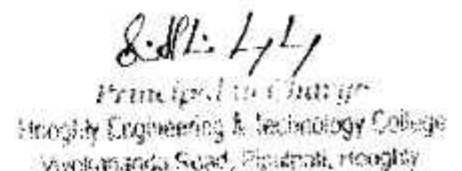 Principal in Charge
Hooghly Engineering & Technology College
Vivekananda Road, Pipulpati, Hooghly